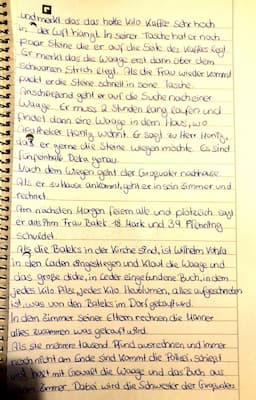 und merkt das das halbe Kilo Kaffee sehr hoch
in der Luft hängt. In seiner Tasche hat er noch
paar Steine die er auf die Seite des Kaffes legt.
Er merkt das die Waage erst dann über dem
schwarzen Strich liegt. Als die Frau wieder kommt
packt er die Steine schnell in seine Tasche.
Anschließend geht er auf die Suche nach einer
Waage. Er muss 2 Stunden lang laufen und
findet dann eine Waage in dem Haus, wo
Apotheker Honig wohnt. Er sagt zu Herr Honig,
daß er gerne die Steine wiegen möchte. Es sind
fünfeinhalb Deka genau.
Nach dem Wiegen geht der Großvater nachhause
Als er zuhause ankommt, geht er in sein Zimmer und
rechnet.
Am nächsten Morgen feiern alle und plötzlich sagt
er das ihm Frau Balek 18 Mark und 39 Pfennig
schuldet.
Als die Baleks in der Kirche sind, ist Wilhelm Vohla
in den Laden eingestiegen und klaut die Waage und
das große dicke, in Leder eingebundene Buch, in dem
jedes Kilo Pilze, jedes Kilo Heublumen, alles aufgeschrieben
ist, was von den Baleks im Dorf gekauft wird.
In dem Zimmer seiner Eltern rechnen die Männer
alles zusammen was gekauft wird.
Als sie mehrere tausend Pfund ausrechnen und immer
noch nicht am Ende sind kommt die Polizei, schießt
und holt mit Gewalt die Waage und das Buch aus
Zimmer. Dabei wird die Schwester der Großvaters